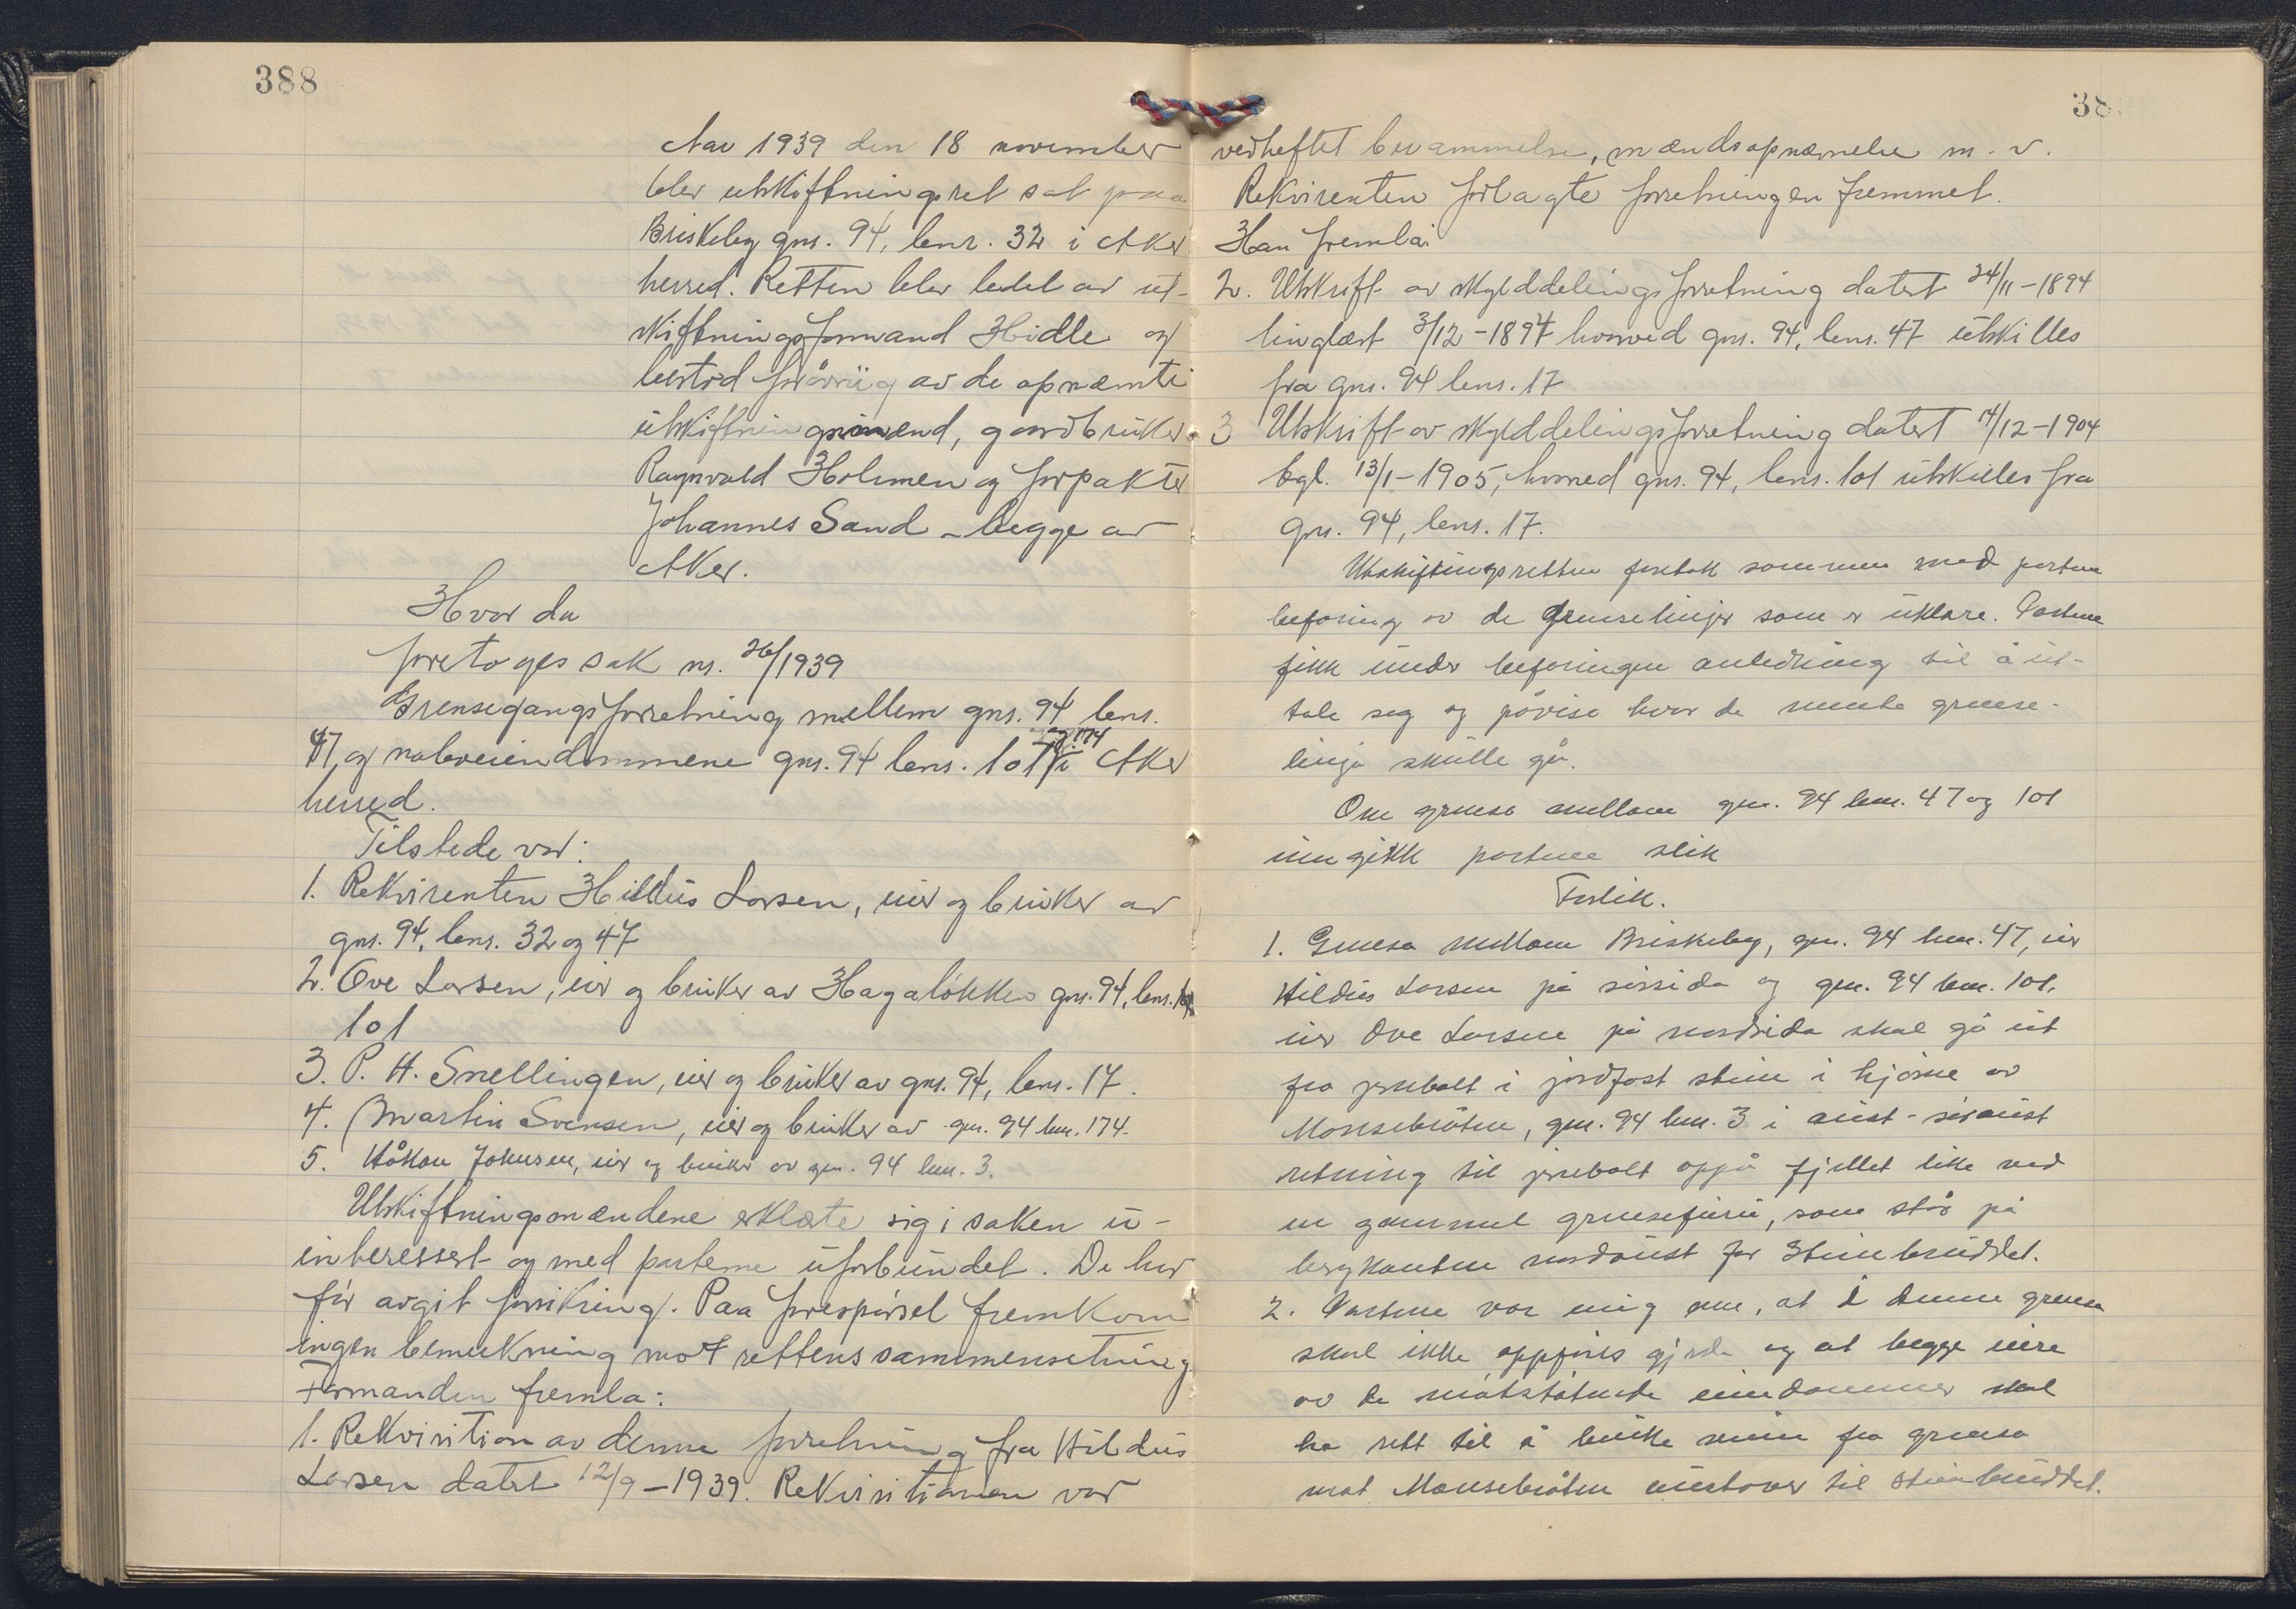 388
Aar 1939 den 18 november
blev utskiftningsret sat paa
Briskeby gnr. 94, bnr. 32 i Aker
herred. Retten blev ledet av ut-
skiftningsformand Hidle og
bestod forøvrig av de opnævnte
utskiftningsmænd, gaardbruker
Ragnvald Holmen og forpakter
Johannes Sand - begge av
Aker.
Hvor da
foretoges sak nr. 26/1939
Grensegangsforretning mellem gnr. 94 bnr.
47, og naboeiendommene gnr. 94 bnr. 101 og 174 i Aker
herred.
Tilstede var:
1. Rekvirenten Hildus Larsen, eier og bruker av
gnr. 94, bnr. 32 og 47
2. Ove Larsen, eier og bruker av Hagaløkken gnr. 94, bnr.
101
3. P. H. Snellingen, eier og bruker av gnr. 94, bnr. 17.
4. Martin Svensen, eier og bruker av gnr. 94 bnr. 174.
5. Håkon Johnsen, eier og bruker av gnr. 94 bnr. 3.
Utskiftningsmændene erklæte sig i saken u-
interessert og med parterne uforbundet. De har
før avgit forsikring. Paa forespørsel fremkom
ingen bemerkning mot rettens sammensetning.
Formanden fremla:
1. Rekvisition av denne forretning fra Hildus
Larsen datert 12/9-1939. Rekvisitionen var
38
vedheftet berammelse, mændsopnævnelse m.v.
Rekvirenten forlagte forretningen fremmet.
Han fremla:
2. Utskrift av skylddelingsforretning datert 24/11-1894
tinglæst 3/12-1894 hvorved gnr. 94, bnr. 47 utskilles
fra gnr. 94 bnr. 17
3 Utskrift av skylddelingsforretning datert 14/12-1904
tgl. 13/1-1905, hvorved gnr. 94, bnr. 101 utskilles fra
gnr. 94, bnr. 17.
Utskiftingsretten foretok sammen med partene
befaring av de grenselinjer som er uklare. Partene
fikk under befaringen anledning til å ut-
tale seg og påvise hvor de mente grense-
linja skulle gå.
Om grensa mellom gnr. 94 bnr. 47 og 101
inngikk partene slik
Forlik.
1. Grensa mellom Briskeby, gnr. 94 bnr. 47, eier
Hildus Larsen på sørsida og gnr. 94 bnr. 101,
eier Ove Larsen på nordsida skal gå ut
fra jernbolt i jordfast stein i hjørne av
Monsebråten, gnr. 94 bnr. 3 i aust-søraust
retning til jernbolt oppå fjellet like ved
en gammel grensefuru, som står på
bergkanten nordaust for Steinbruddet.
2. Partene var enig om, at i denne grensa
skal ikke oppføres gjerde og at begge eiere
av de motstøtende eiendommer skal
ha rett til å bruke veien fra grensa
mot Monsebråten austover til steinbruddet.